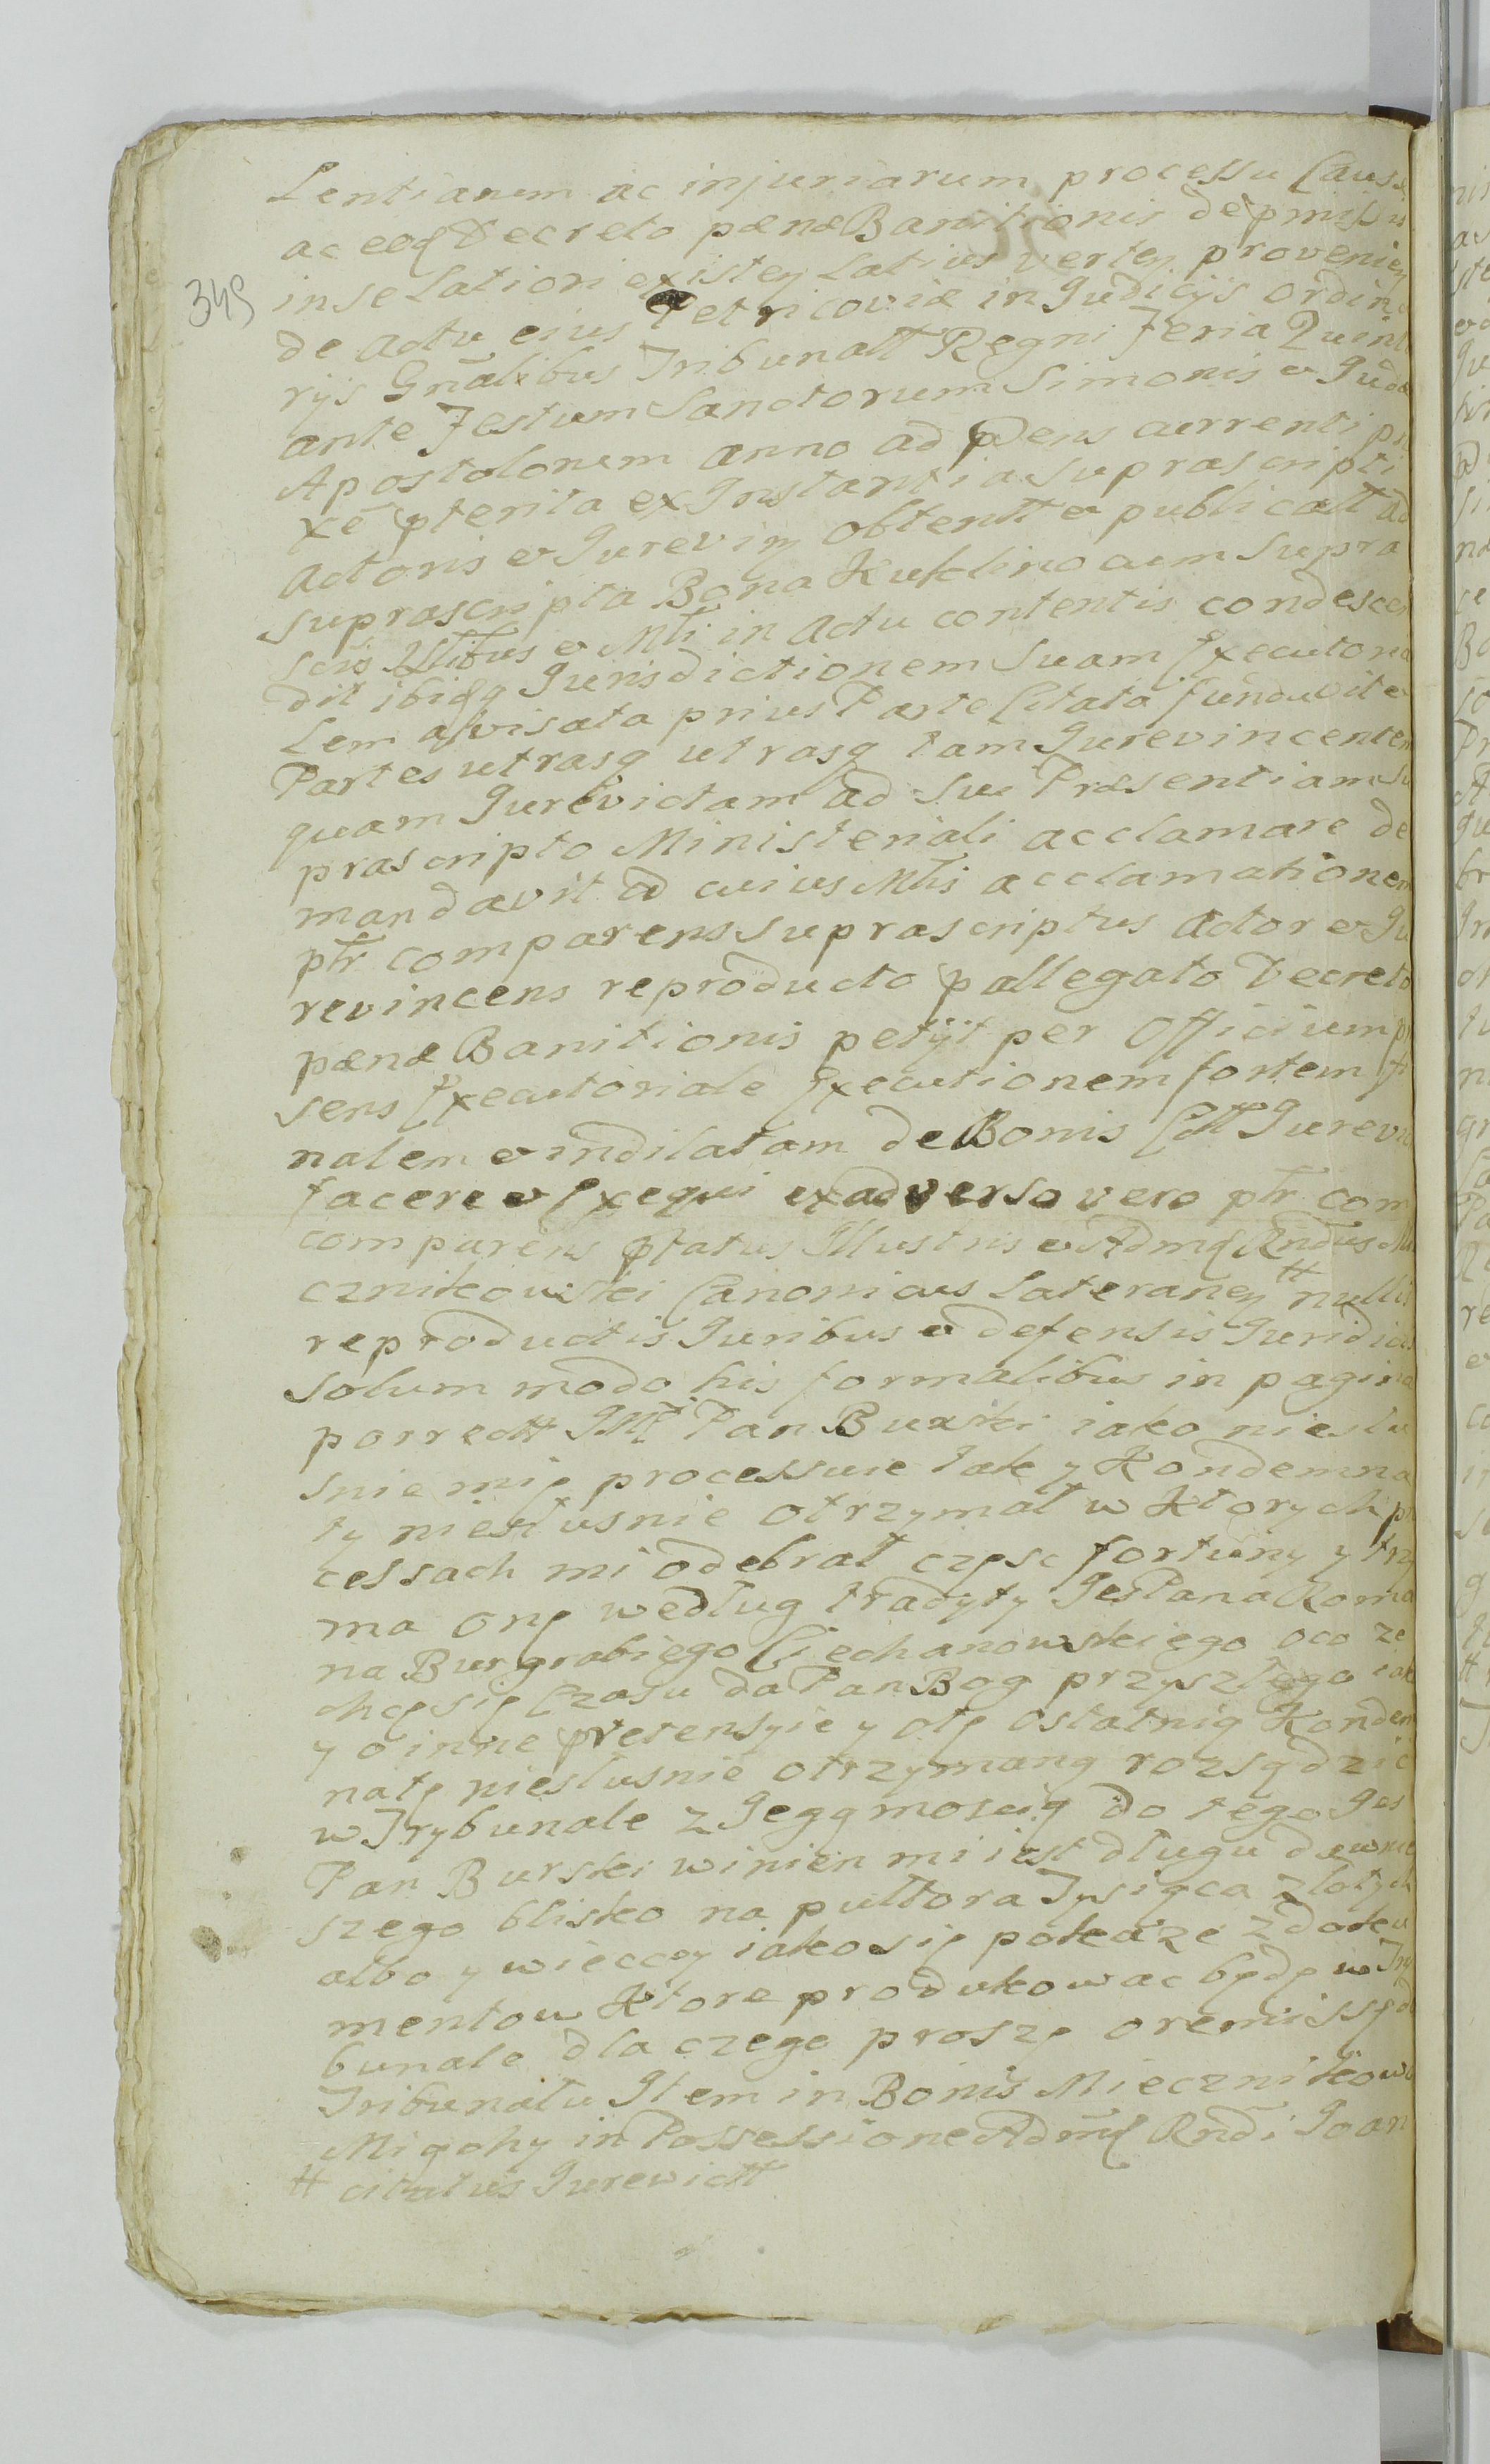 Lentiarum ac injuriarum processu Causæ
ac eoq Decreto pænæ Banitionis de pmissis
in se Latiori existen Latius verten provenien
349
de actu eius Petricoviæ in Judicijs ordina
rijs Gnalibus Tribunalt Regni Feria Quinta
ante Festum Sanctorum Simonis et Judæ
Apostolorum anno ad pdens currenti pro
xe pterita ex Instantia suprascripti
Actoris et Jurevin obtentt et publicatt ad
suprascripta Bona Kuklino cum supra
scris Nlibus et Mli in actu contentis condescen
dit ibidq Jurisdictionem Suam Executoria
Lem avisata prius Parte Citata funduvit et
Partes utrasq utrasq tam Jurevincentem
quam Jurevictam ad sui Præsentiam su
prascripto Ministeriali acclamare de
mandavit ad cuius Mlis acclamationem
ptr comparens suprascriptus Actor et Ju
revincens reproducto pallegato Decreto
pænæ Banitionis petijt per Officium p
sens Executoriale Executionem fortem fi
nalem et indilatam de Bonis Citt Jurevic
facere et Exequi ex adverso vero ptr com
comparens ptatus Illustris et Admq Rndus Mie
cznikowski Canonicus Lateranen # nullis
reproductis Juribus et defensis Juridicis
solum modo his formalibus in pagina
porrectt JMP Pan Burski iako niesłu
snie mię processuie tak y Kondemna
ty niesłusnie otrzymał w Ktorych pro
cessach mi odebrał częsc fortuny y trzy
ma onę według tradyty Jes Pana Roma
na Burgrabiego Ciechanowskiego oco ze
chcę się Czasu da Pan Bog przyszłego iak
y o inne pretensyie y otę ostatnią Kondem
natę niesłusnie otrzymaną rozsądzic
w Trybunale z Jegąmoscią do tego Jes
Pan Burski winien mi iest długu dawnie
szego blisko na pułtora Tysiąca złotych
albo y wieccey iako się pokaże z doku
mentow Ktore produkowac będę w Try
bunale dla czego proszę o remissę do
Tribunalu Item in Bonis Miecznikowo
Migohy in Possessione Admq Rndi Joan
# citatus Jurevictt